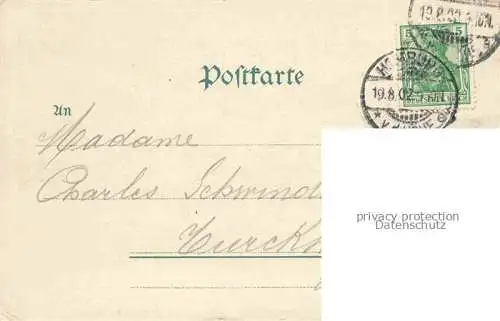 19.8.02
5 5
Postkarte
HOMBURG
19.8.02
An
Madame
Charles Schwind
Turck
privacy protection
Datenschutz